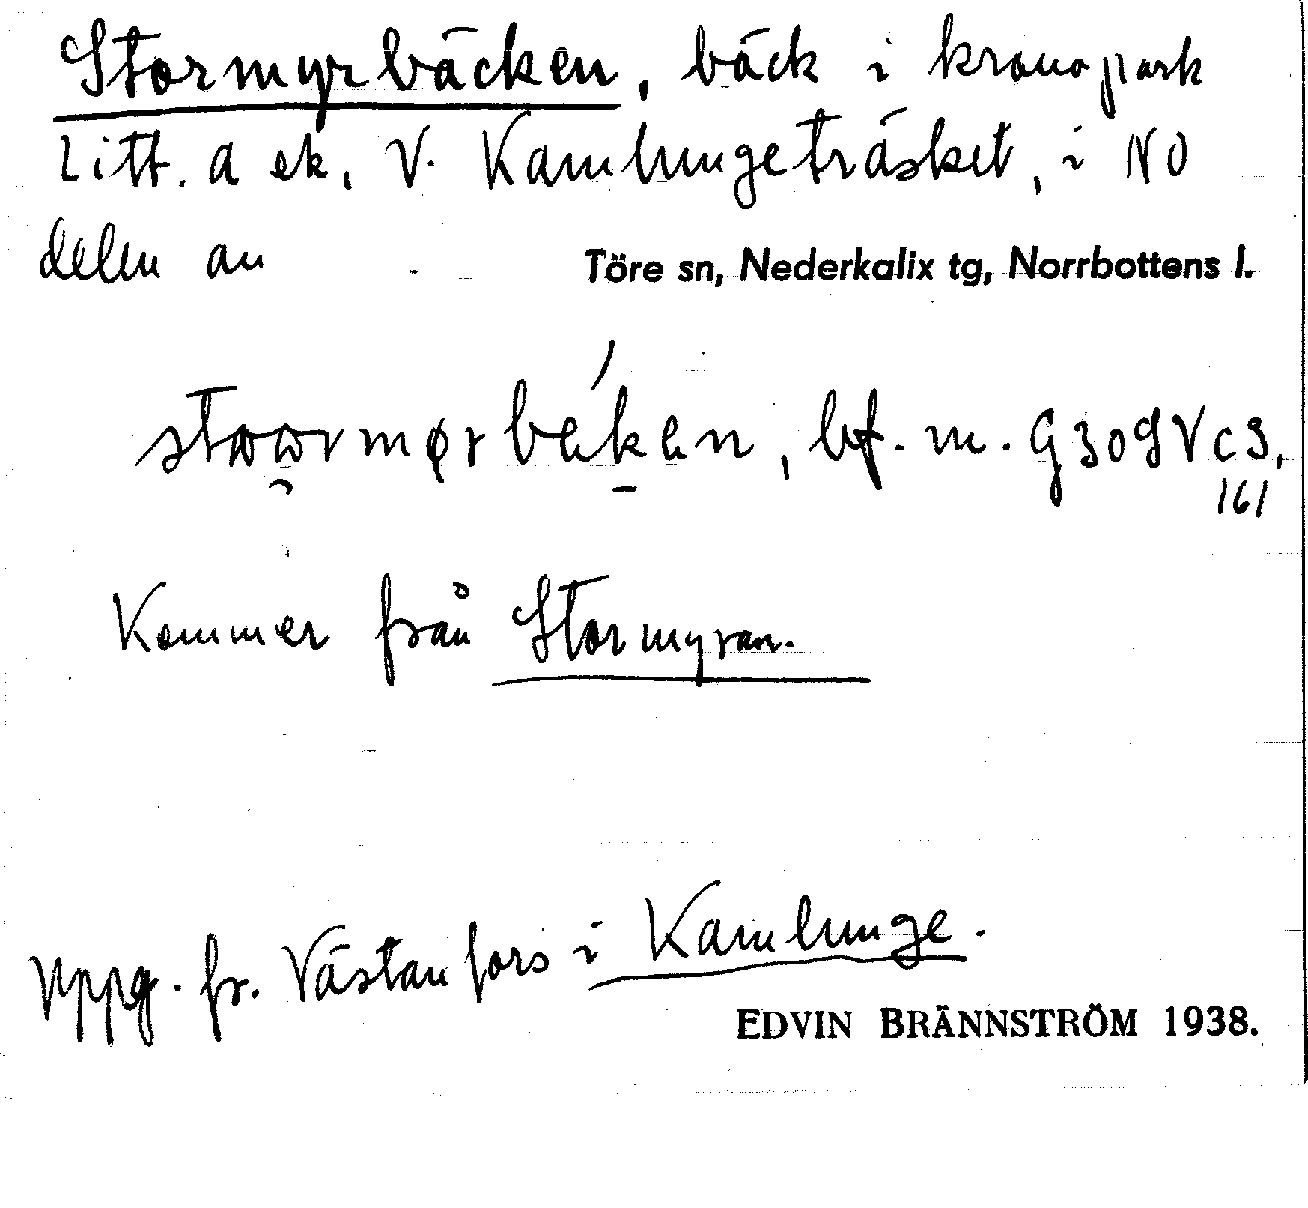 Stormyrbäcken, bäck i kronopark
Litt. A ek, V. Kamlungeträsket, i NO
delen av Töre sn, Nederkalix tg, Norrbottens l.
bf. m.
161
Kommer från Stormyran.
Uppg. fr. Västanfors i Kamlunge.
EDVIN BRÄNNSTRÖM 1938.